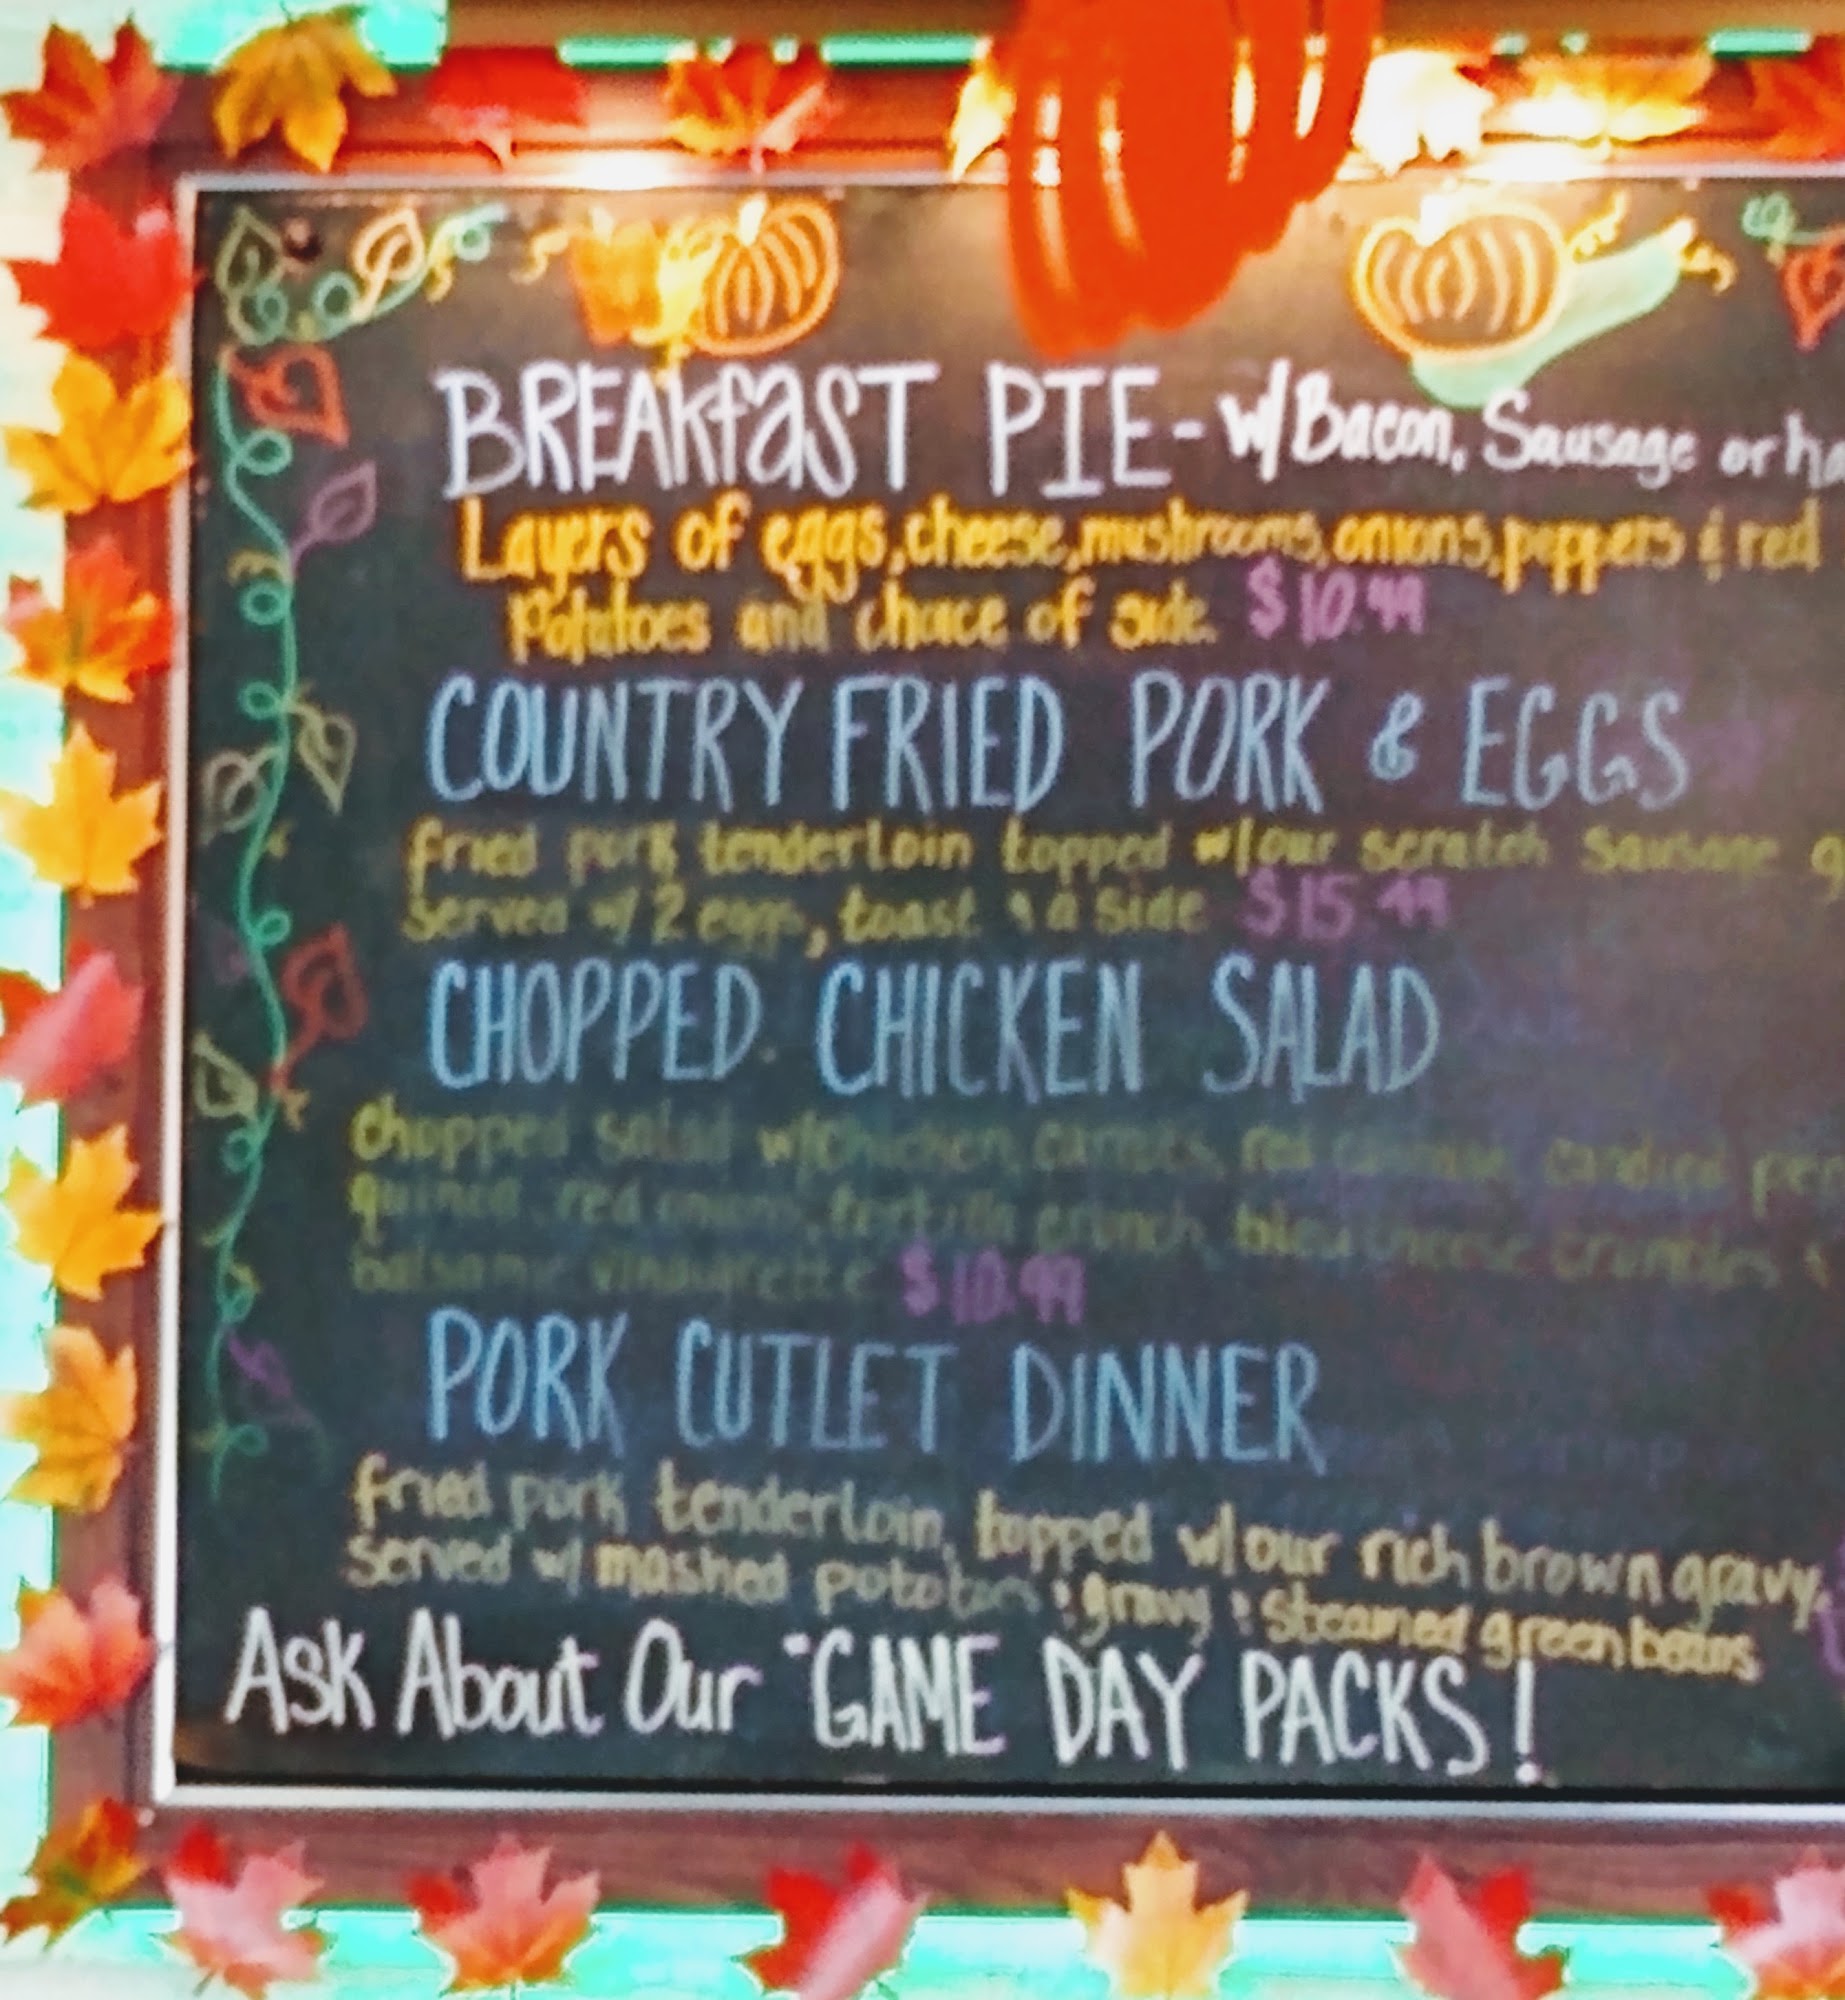 BREAKfaST PIE - w/Bacon, Sausage or ha
Layers of eggs, cheese, mushrooms, onions, peppers & red
Potatoes and choice of side. $10.99
COUNTRY FRIED PORK & EGGS
fried pork tenderloin topped w/our scratch sausage g
served w/ 2 eggs, toast & a side $15.49
CHOPPED CHICKEN SALAD
chopped salad w/chicken, carrots, red cabbage, candied pe
quinoa, red onions, tortilla crunch, bleu cheese crumbles &
balsamic vinaigrette $10.99
PORK CUTLET DINNER
fried pork tenderloin, topped w/our rich brown gravy,
served w/ mashed potatoes & gravy & steamed green beans
Ask About Our "GAME DAY PACKS!